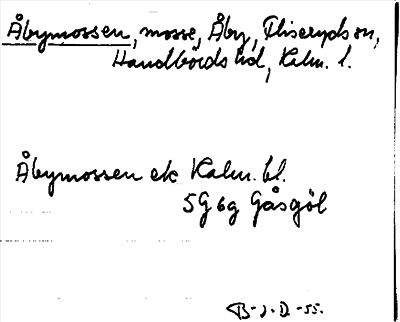 Åbymossen, mosse, Åby, Fliseryds sn,
Handbörds hd, Kalm. l.
Åbymossen ek Kalm. bl.
5G6g Gåsgöl
B-J.D.-55.